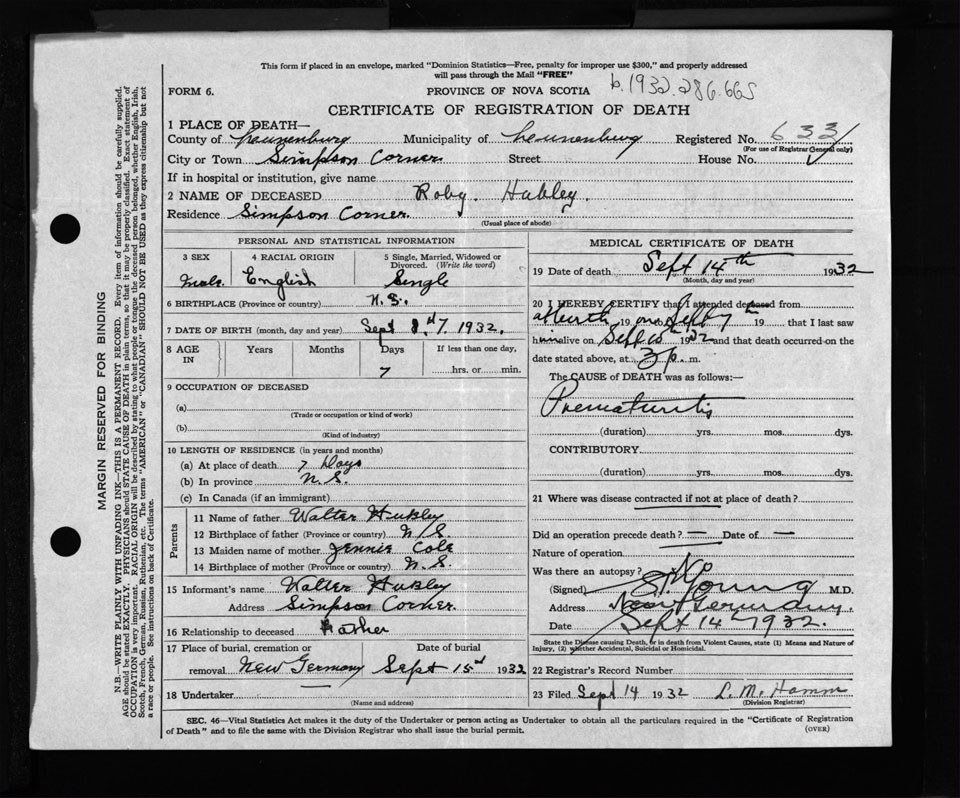 This form if placed in an envelope, marked "Dominion Statistics—Free, penalty for improper use $300," and properly addressed
will pass through the Mail "FREE"
FORM 6.
PROVINCE OF NOVA SCOTIA b.1932.286.665
CERTIFICATE OF REGISTRATION OF DEATH
1 PLACE OF DEATH—
County of Lunenburg Municipality of Lunenburg Registered No. 633
(For use of Registrar General only)
City or Town Simpson Corner Street House No.
If in hospital or institution, give name
2 NAME OF DECEASED Roby. Hubley.
Residence Simpson Corner.
(Usual place of abode)
PERSONAL AND STATISTICAL INFORMATION
3 SEX 4 RACIAL ORIGIN 5 Single, Married, Widowed or Divorced. (Write the word)
Male. English Single
6 BIRTHPLACE (Province or country) N.S.
7 DATE OF BIRTH (month, day and year) Sept 7. 1932.
8 AGE IN Years Months Days If less than one day,
7 hrs. or min.
9 OCCUPATION OF DECEASED
(a)
(Trade or occupation or kind of work)
(b)
(Kind of industry)
10 LENGTH OF RESIDENCE (in years and months)
(a) At place of death 7 Days
(b) In province N.S.
(c) In Canada (if an immigrant)
Parents
11 Name of father Walter Hubley
12 Birthplace of father (Province or country) N/S.
13 Maiden name of mother Jennie Cole
14 Birthplace of mother (Province or country) N.S.
15 Informant's name Walter Hubley
Address Simpson Corner.
16 Relationship to deceased Father
17 Place of burial, cremation or removal Date of burial
New Germany Sept 15 1932
18 Undertaker
(Name and address)
MEDICAL CERTIFICATE OF DEATH
19 Date of death Sept 14th 1932
(Month, day and year)
20 I HEREBY CERTIFY that I attended deceased from
at birth 19 on Sept 7th 19 that I last saw
him alive on Sept 10th 1932 and that death occurred on the
date stated above, at 3 p. m.
The CAUSE of DEATH was as follows:—
Prematurity
(duration) yrs. mos. dys.
CONTRIBUTORY
(duration) yrs. mos. dys.
21 Where was disease contracted if not at place of death?
Did an operation precede death? — Date of —
Nature of operation
Was there an autopsy? No
(Signed) Young M.D.
Address New Germany.
Date Sept 14th 1932.
State the Disease causing Death, or in death from Violent Causes, state (1) Means and Nature of
Injury, (2) whether Accidental, Suicidal or Homicidal.
22 Registrar's Record Number
23 Filed Sept 14 1932 L. M. Hamm
(Division Registrar)
SEC. 46—Vital Statistics Act makes it the duty of the Undertaker or person acting as Undertaker to obtain all the particulars required in the "Certificate of Registration
of Death" and to file the same with the Division Registrar who shall issue the burial permit.
(OVER)
MARGIN RESERVED FOR BINDING
N.B.—WRITE PLAINLY WITH UNFADING INK—THIS IS A PERMANENT RECORD. Every item of information should be carefully supplied.
AGE should be stated EXACTLY. PHYSICIANS should STATE CAUSE OF DEATH in plain terms, so that it may be properly classified. Exact statement of
OCCUPATION is very important. RACIAL ORIGIN will be described by stating to what people or tongue the deceased person belonged, whether English, Irish,
Scotch, French, German, Russian, Ruthenian, etc. The terms "AMERICAN" or "CANADIAN" SHOULD NOT BE USED as they express citizenship but not
a race or people. See instructions on back of Certificate.